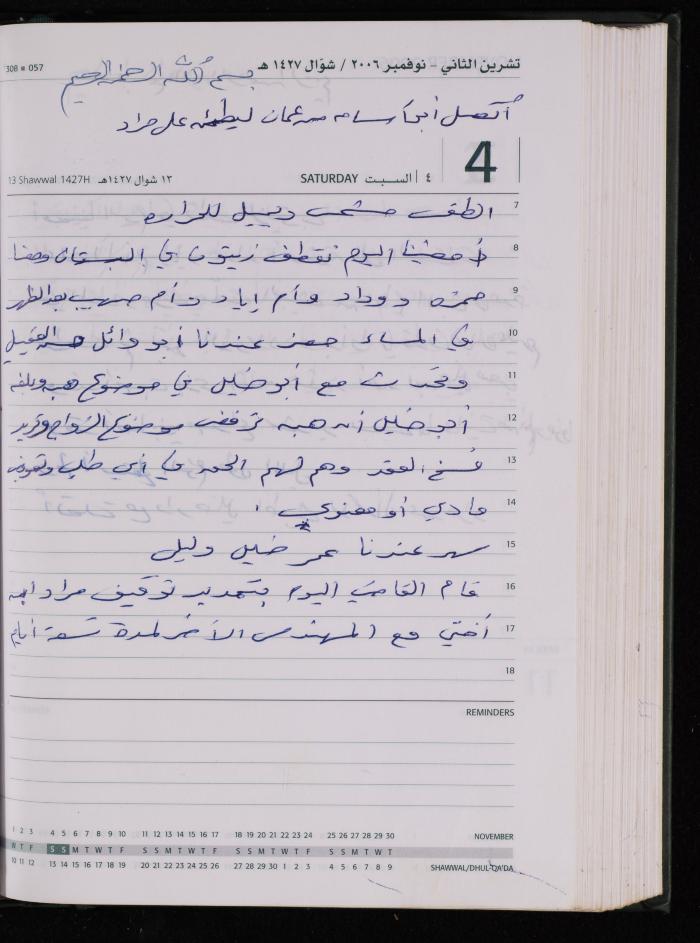 308 057
تشرين الثاني - نوفمبر ٢٠٠٦ / شوّال ١٤٢٧ هـ
بسم الله الرحمن الرحيم
أتصل أبو أسامه من عمان ليطمئن على مراد
4
13 Shawwal 1427H ١٣ شوال ١٤٢٧هـ SATURDAY السبت ٤
7 الطقس مشمس ويميل للحراره
8 أمضينا اليوم نقطف زيتون في البستان ومعنا
9 حمزه ووداد وأم إياد وأم صهيب بعد الظهر
10 في المساء حضر عندنا أبو وائل
11 وتحدث مع أبو خليل في موضوع هبه وبلغه
12 أبو خليل أن هبه ترفض موضوع الزواج وتريد
13 فسخ العقد وهم لهم الحق في أي طلب وتعويض
14 مادي أو معنوي .
15 سهر عندنا عمر خليل وليلى
16 قام القاضي اليوم بتمديد توقيف مراد ابن
17 أختي مع المهندس الآخر لمدة تسعة أيام
18
REMINDERS
1 2 3 4 5 6 7 8 9 10 11 12 13 14 15 16 17 18 19 20 21 22 23 24 25 26 27 28 29 30 NOVEMBER
W T F S S M T W T F S S M T W T F S S M T W T F S S M T W T
10 11 12 13 14 15 16 17 18 19 20 21 22 23 24 25 26 27 28 29 30 1 2 3 4 5 6 7 8 9 SHAWWAL/DHUL-QA'DA